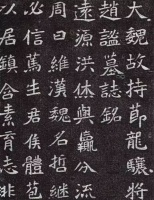 大魏故持節龍驤將
趙謐墓誌銘
遠源洪休與嬴分流
周曰維漢魏名哲繼
必信篤生君侯體苞
以居鎮含素育志非